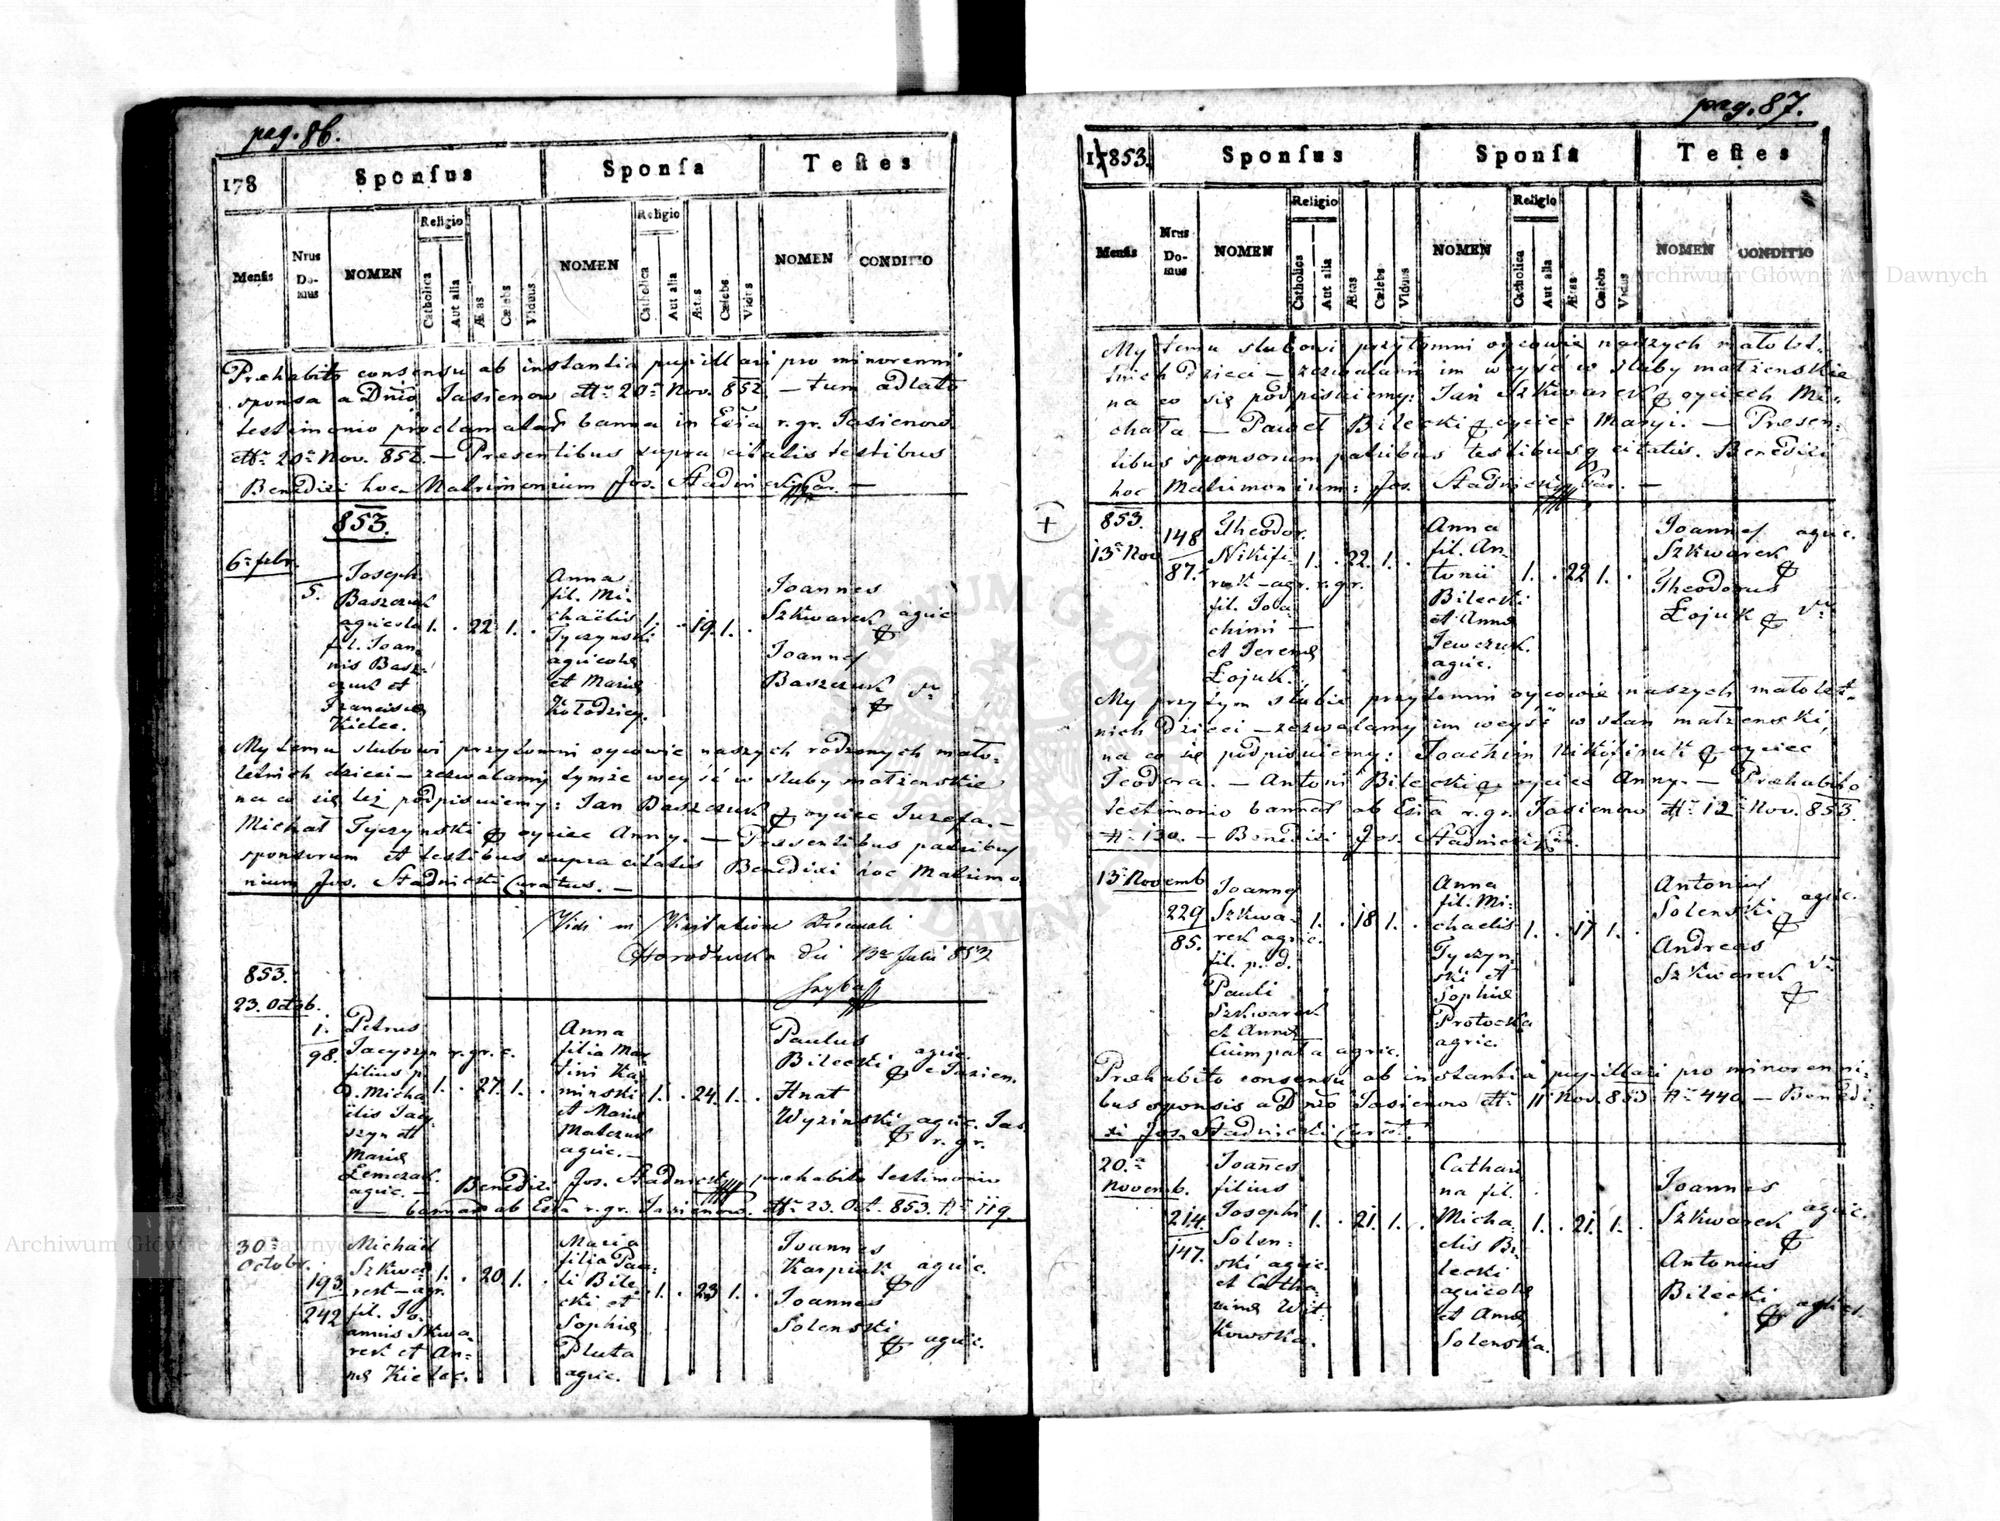 pag. 86.
178
Sponſus
Sponſa
Teſtes
Menſis
Nrus Domus
NOMEN
Religio
Catholica
Aut alia
Ætas
Cælebs
Viduus
NOMEN
Religio
Catholica
Aut alia
Ætas
Cælebs
Vidua
NOMEN
CONDITIO
Præhabito consensu ab instantia pupillari pro minorenni
sponsa a Dñio Jasienow 20a Nov. 852. — tum adlato
testimonio proclamatar banna in Eccła r. gr. Jasienow.
20a Nov. 852. — Presentibus supra citatis testibus
Benedixi hoc Matrimonium Jos. Stadnicki Par. —
853.
6a febr.
5.
Joseph
Baszczuk
agricola
fil. Joan-
nis Basz-
czuk et
Francisca
Kielec.
1. . 22. 1. .
Anna
fil. Mi-
chaëlis
Tyczynski
agricolæ
et Mariæ
Kołodziey.
1. . 19. 1. .
Joannes
Szkwarek agric
Joannes
Baszczuk
My temu slubowi przytomni oycowie naszych rodzonych mało-
letnich dzieci — zezwalamy tymże weyść w sluby małżenskie
na co się też podpisuiemy: Jan Baszczuk oyciec Iuzefa. —
Michał Tyczynski oyciec Anny. — Presentibus patribus
sponsorum et testibus supra citatis Benedixi hoc Matrimo
nium Jos. Stadnicki Curatus. —
Vidi in Visitatione Decanali
Horodenka die 13a Julii 853
853.
23. Octob.
1.
98.
Petrus
Jacyszyn r. gr. c.
filius p.
d. Micha
elis Jacy-
szyn et
Mariæ
Łemczak
agric. —
1. . 27. 1. .
Anna
filia Mar
tini Ka-
minski
et Mariæ
Malczuk
agric. —
1. . 24. 1. .
Paulus
Bilecki agric.
e Jasien.
Hnat
Wyzinski agric. Jas.
r. gr.
Benedixi Jos. Stadnicki præhabito testimonio
bannar ab Eccła r. gr. Jasienow. 23. Oct. 853. N 119.
30a
Octobr.
193
242
Michaël
Szkwa-
rek — agr.
fil. Jo-
annis Skwa-
rek et An-
næ Kielec.
1. . 20. 1. .
Maria
filia Pau-
li Bile-
cki et
Sophiæ
Pluta
agric.
1. . 23 1. .
Joannes
Karpiak agric.
Joannes
Solenski
agric.
pag. 87.
1853.
Sponſus
Sponſa
Teſtes
Menſis
Nrus Domus
NOMEN
Religio
Catholica
Aut alia
Ætas
Cælebs
Viduus
NOMEN
Religio
Catholica
Aut alia
Ætas
Cælebs
Vidua
NOMEN
CONDITIO
My temu slubowi przytomni oycowie naszych małolet-
tnich dzieci — zezwalamy im weyść w sluby małżenskie
na co się podpisuiemy: Jan Szkwarek oyciech Mi-
chała — Paweł Bilecki oyciec Maryi. — Presen-
tibus sponsorum patribus testibusq citatis. Benedixi
hoc Matrimonium: Jos. Stadnicki Par. —
853.
13a Nov
148
87.
Theodor
Nikifi-
ruk — agr. r. gr.
fil. Joa-
chimi —
et Jeremæ
Łojuk.
1. . 22. 1. .
Anna
fil. An-
tonii
Bilecki
et Annæ
Jewczuk.
agric.
1. . 22 1. .
Joannes agric.
Szkwarek
Theodorus
Łojuk
My przy tym slubie przytomni oycowie naszych małolet-
nich dzieci — zezwalamy im weyść w stan małżenski,
na co się podpisuiemy: Joachim Nikifiruk oyciec
Teodora. — Antoni Bilecki oyciec Anny. — Præhabito
testimonio bannar ab Eccła r. gr. Jasienow 12 Nov. 853.
N 130. — Benedixi Jos. Stadnicki
13a Novemb
229
85.
Joannes
Szkwa-
rek agric.
fil. p. d.
Pauli
Szkwarek
et Annæ
Cuimpała agric.
1. . 18 1. .
Anna
fil. Mi-
chaelis
Tyczyn-
ski et
Sophiæ
Protocka
agric.
1. . 17 1. .
Antonius
Solenski agric.
Andreas
Szkwarek
Præhabito consensu ab instantia pupillari pro minorenni-
bus sponsis a Dñio Jasienow 11 Nov. 853 N 440 — Benedi-
xi Jos. Stadnicki Curat.
20.a
Novemb.
214.
147.
Joañes
filius
Josephi
Solen-
ski agric.
et Catha-
rinæ Wit-
kowska.
1. . 21. 1. .
Cathari
na fil.
Micha-
elis Bi-
lecki
agricolæ
et Annæ
Solenska.
1. . 21. 1. .
Joannes
Szkwarek agric.
Antonius
Bilecki
agric.
Archiwum Główne Akt Dawnych
Archiwum Główne Akt Dawnych